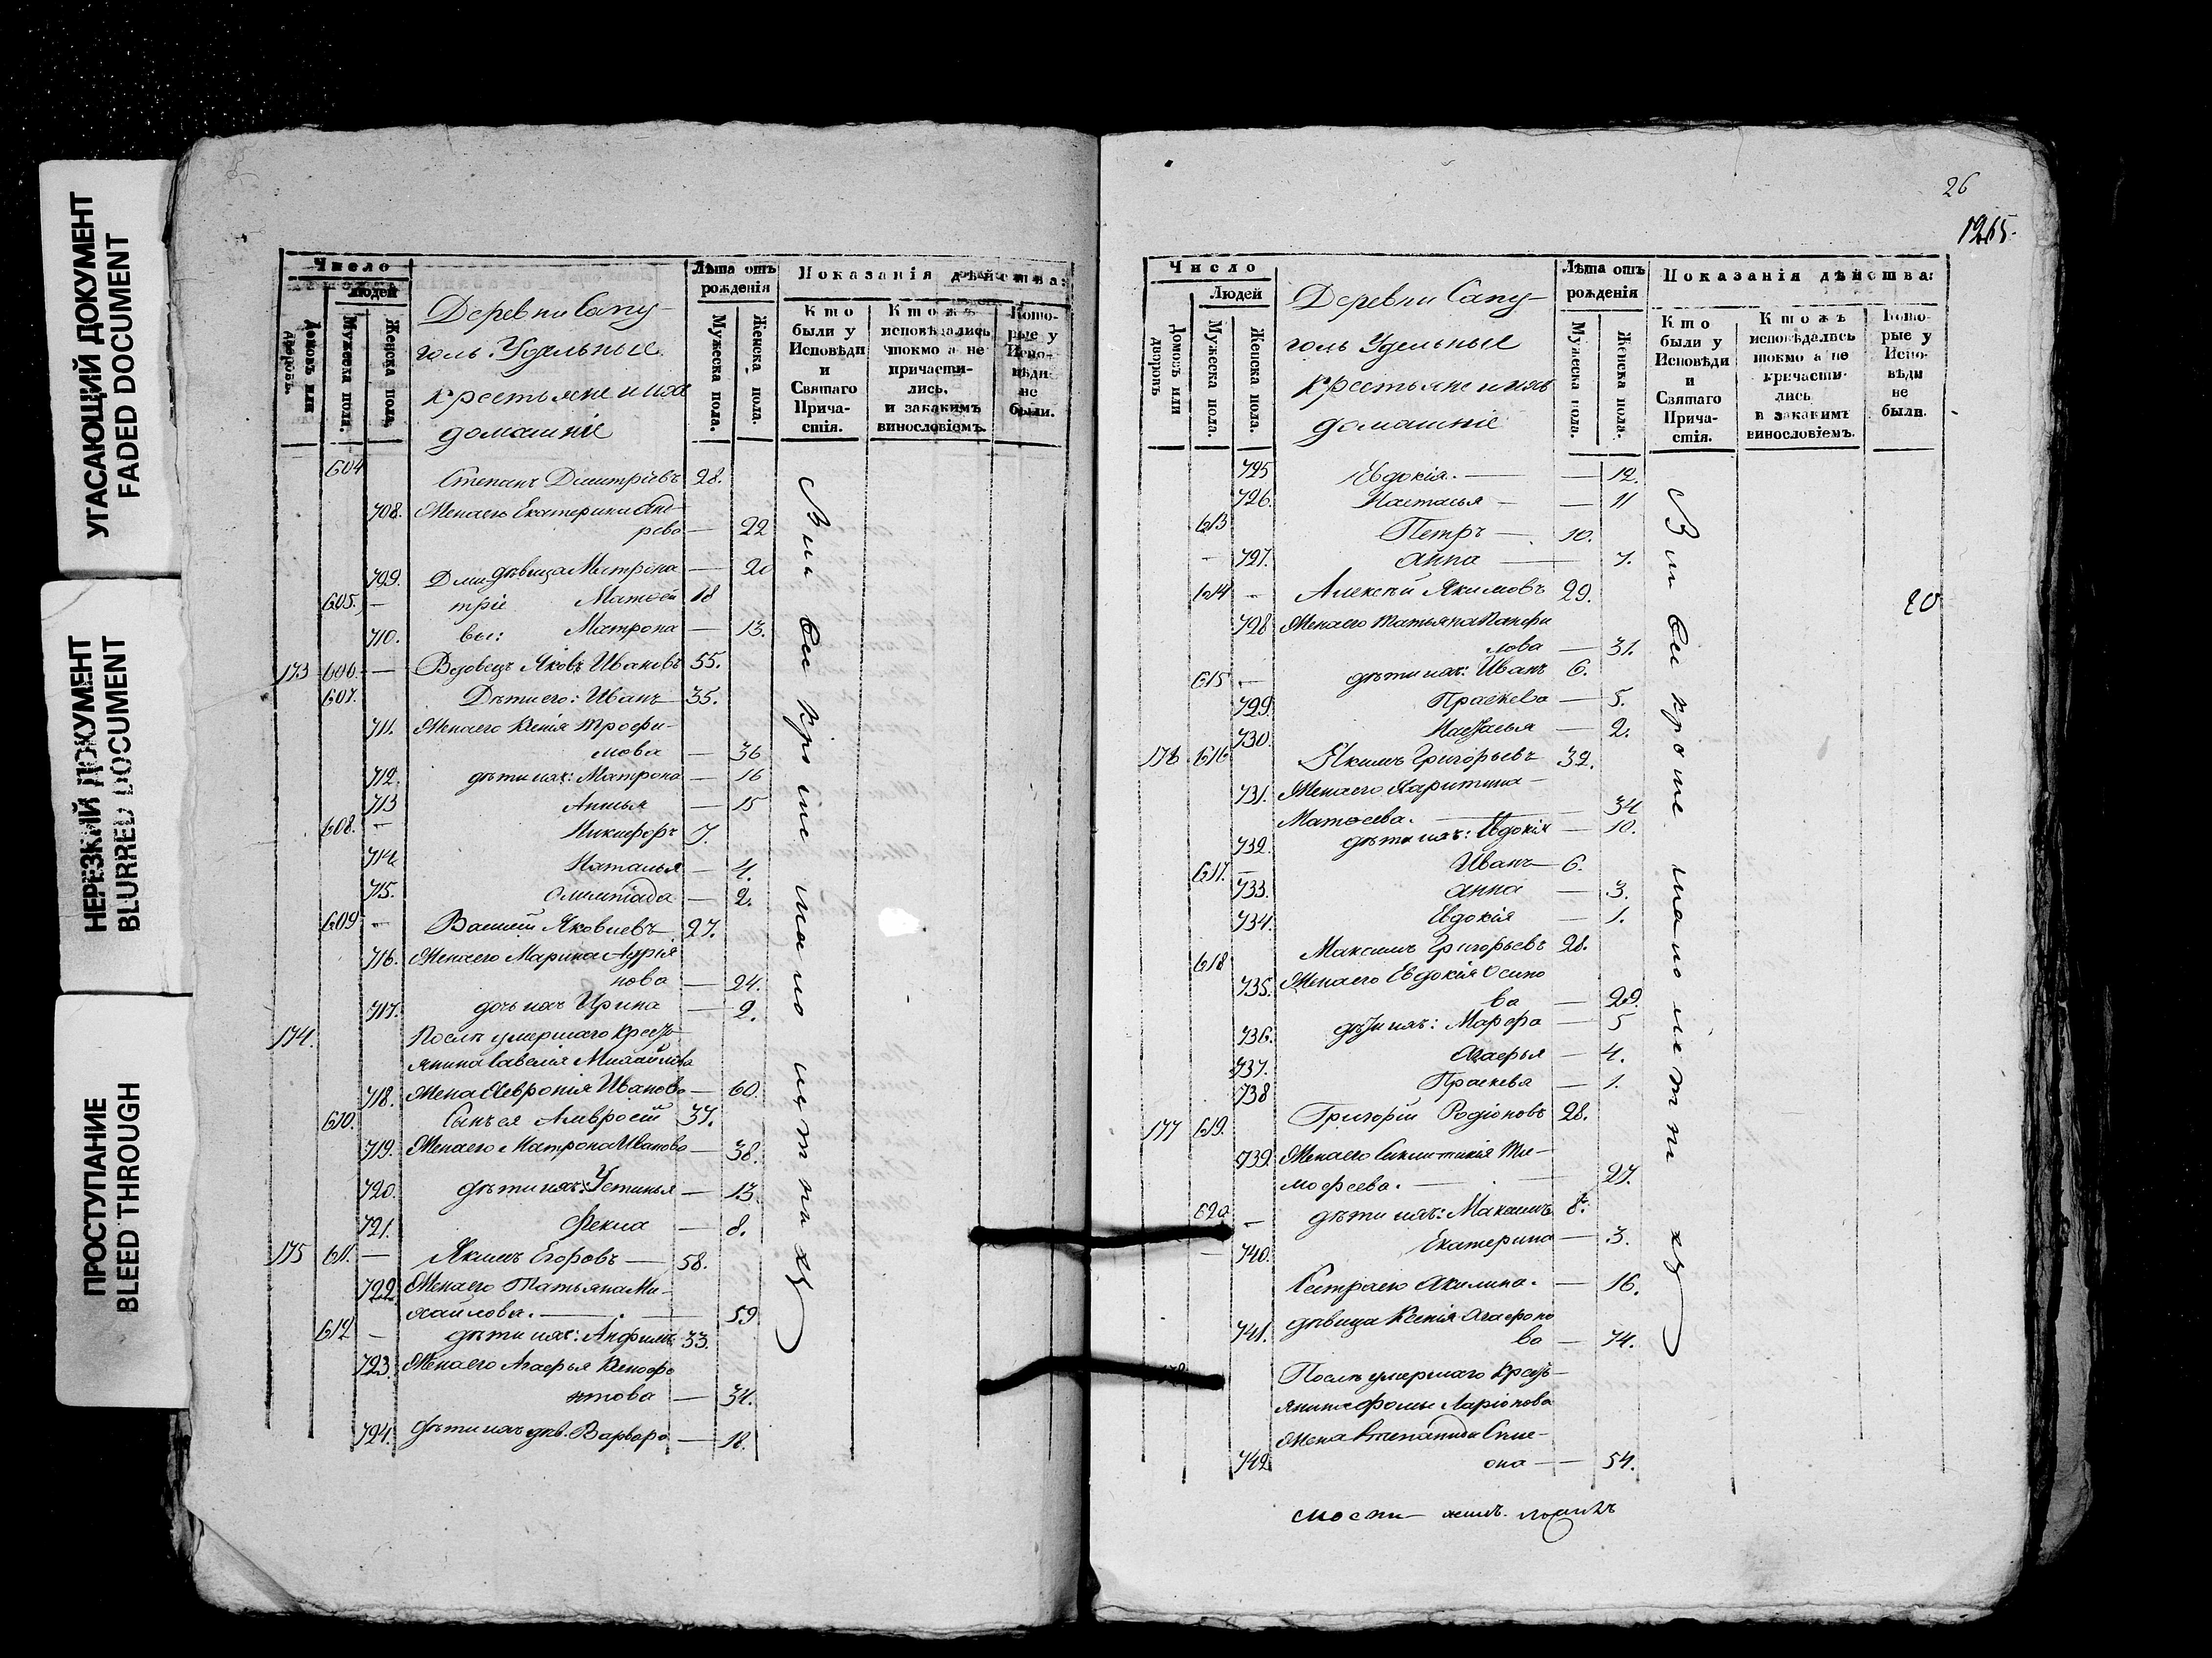 УГАСАЮЩИЙ ДОКУМЕНТ
FADED DOCUMENT
НЕРЕЗКИЙ ДОКУМЕНТ
BLURRED DOCUMENT
ПРОСТУПАНИЕ
BLEED THROUGH
Число
Людей
Домовъ или дворовъ.
Мужеска пола.
Женска пола.
Деревни Сапу-
голь. Удельные
крестьяне и ихъ
домашніе
Лѣта отъ рожденія
Мужеска пола.
Женска пола.
Показанія дѣйства:
Кто были у Исповѣди и Святаго Причастія.
Кто жъ исповѣдались токмо а не причастились, и закакимъ винословіемъ.
Которые у Исповѣди не были.
604 Степанъ Димитріевъ 28.
708. Жена его Екатерина Анд-
рева — 22
709. Дми дѣвица Матрона — 20
605. — тріе Матвей 18
710. вы: Матрона — 13.
173 606. — Вдовецъ Яковъ Ивановъ 55.
607. Дѣти его: Иванъ 35.
711. Жена его Ксенія Трофи-
мова — 36
712. дѣти ихъ: Матрона — 16
713 Анисья — 15
608. — Никифоръ 7.
714 Наталья — 4.
715. Олимпіада — 2.
609 — Василій Яковлевъ 27.
716. Жена его Марина Андрія
нова — 24.
717. дочь ихъ Ирина — 2.
174. Послѣ умершаго крест-
янина Савелія Михайлова
718. Жена Февронія Иванова — 60.
610. Сынъ ея Амвросій 37.
719. Жена его Матрона Иванова — 38.
720. дѣти ихъ: Устинья — 13.
721. Фекла — 8.
175 611. — Якимъ Егоровъ — 58.
722. Жена его Татьяна Ми-
хайлова. — 59
612 — дѣти ихъ: Анфимъ 33.
723. Жена его Агафья Ксенофо
нтова — 34.
724. Дѣти ихъ дѣв. Варвара — 18.
Вси
26
1265.
Число
Людей
Домовъ или дворовъ
Мужеска пола.
Женска пола.
Деревни Сапу-
голь Удельные
крестьяне и ихъ
домашніе
Лѣта отъ рожденія
Мужеска пола.
Женска пола.
Показанія дѣйства:
Кто были у Исповѣди и Святаго Причастія.
Кто жъ исповѣдались токмо а не причастились и закакимъ винословіемъ.
Которые у Исповѣди не были.
725 Евдокія. — — 12.
726. Настасья — — 11
613 Петръ — 10.
— 727. Анна — 7.
614 — Алексѣй Якимовъ 29.
728 Жена его Татьяна Панфи
лова — 31.
615 — дѣти ихъ: Иванъ 6.
729. Праскева — 5.
730. Настасья — 2.
176 616 Якимъ Григорьевъ 32.
731. Жена его Харитина
Матвеева. — 34
732. дѣти ихъ: Евдокія — 10.
617. — Иванъ — 6.
733. Анна — 3.
734. Евдокія — 1.
618 Максимъ Григорьевъ 28.
735. Жена его Евдокія Осипо
ва — 29.
736. дѣти ихъ: Марфа — 5
737. Агафья — 4.
738 Праскева — 1.
177 619. Григорій Родіоновъ 28.
739. Жена его Синклитикія Ти-
мофеева. — 27.
620 — дѣти ихъ: Максимъ 8.
740. Екатерина — 3.
Сестра его Акилина. — 16.
741. дѣвица Ксенія Агафоно
ва — 74.
Послѣ умершаго крест-
янина Фомы Ларіонова
Жена Степанида Симе-
742. она — — 54.
20
Вси